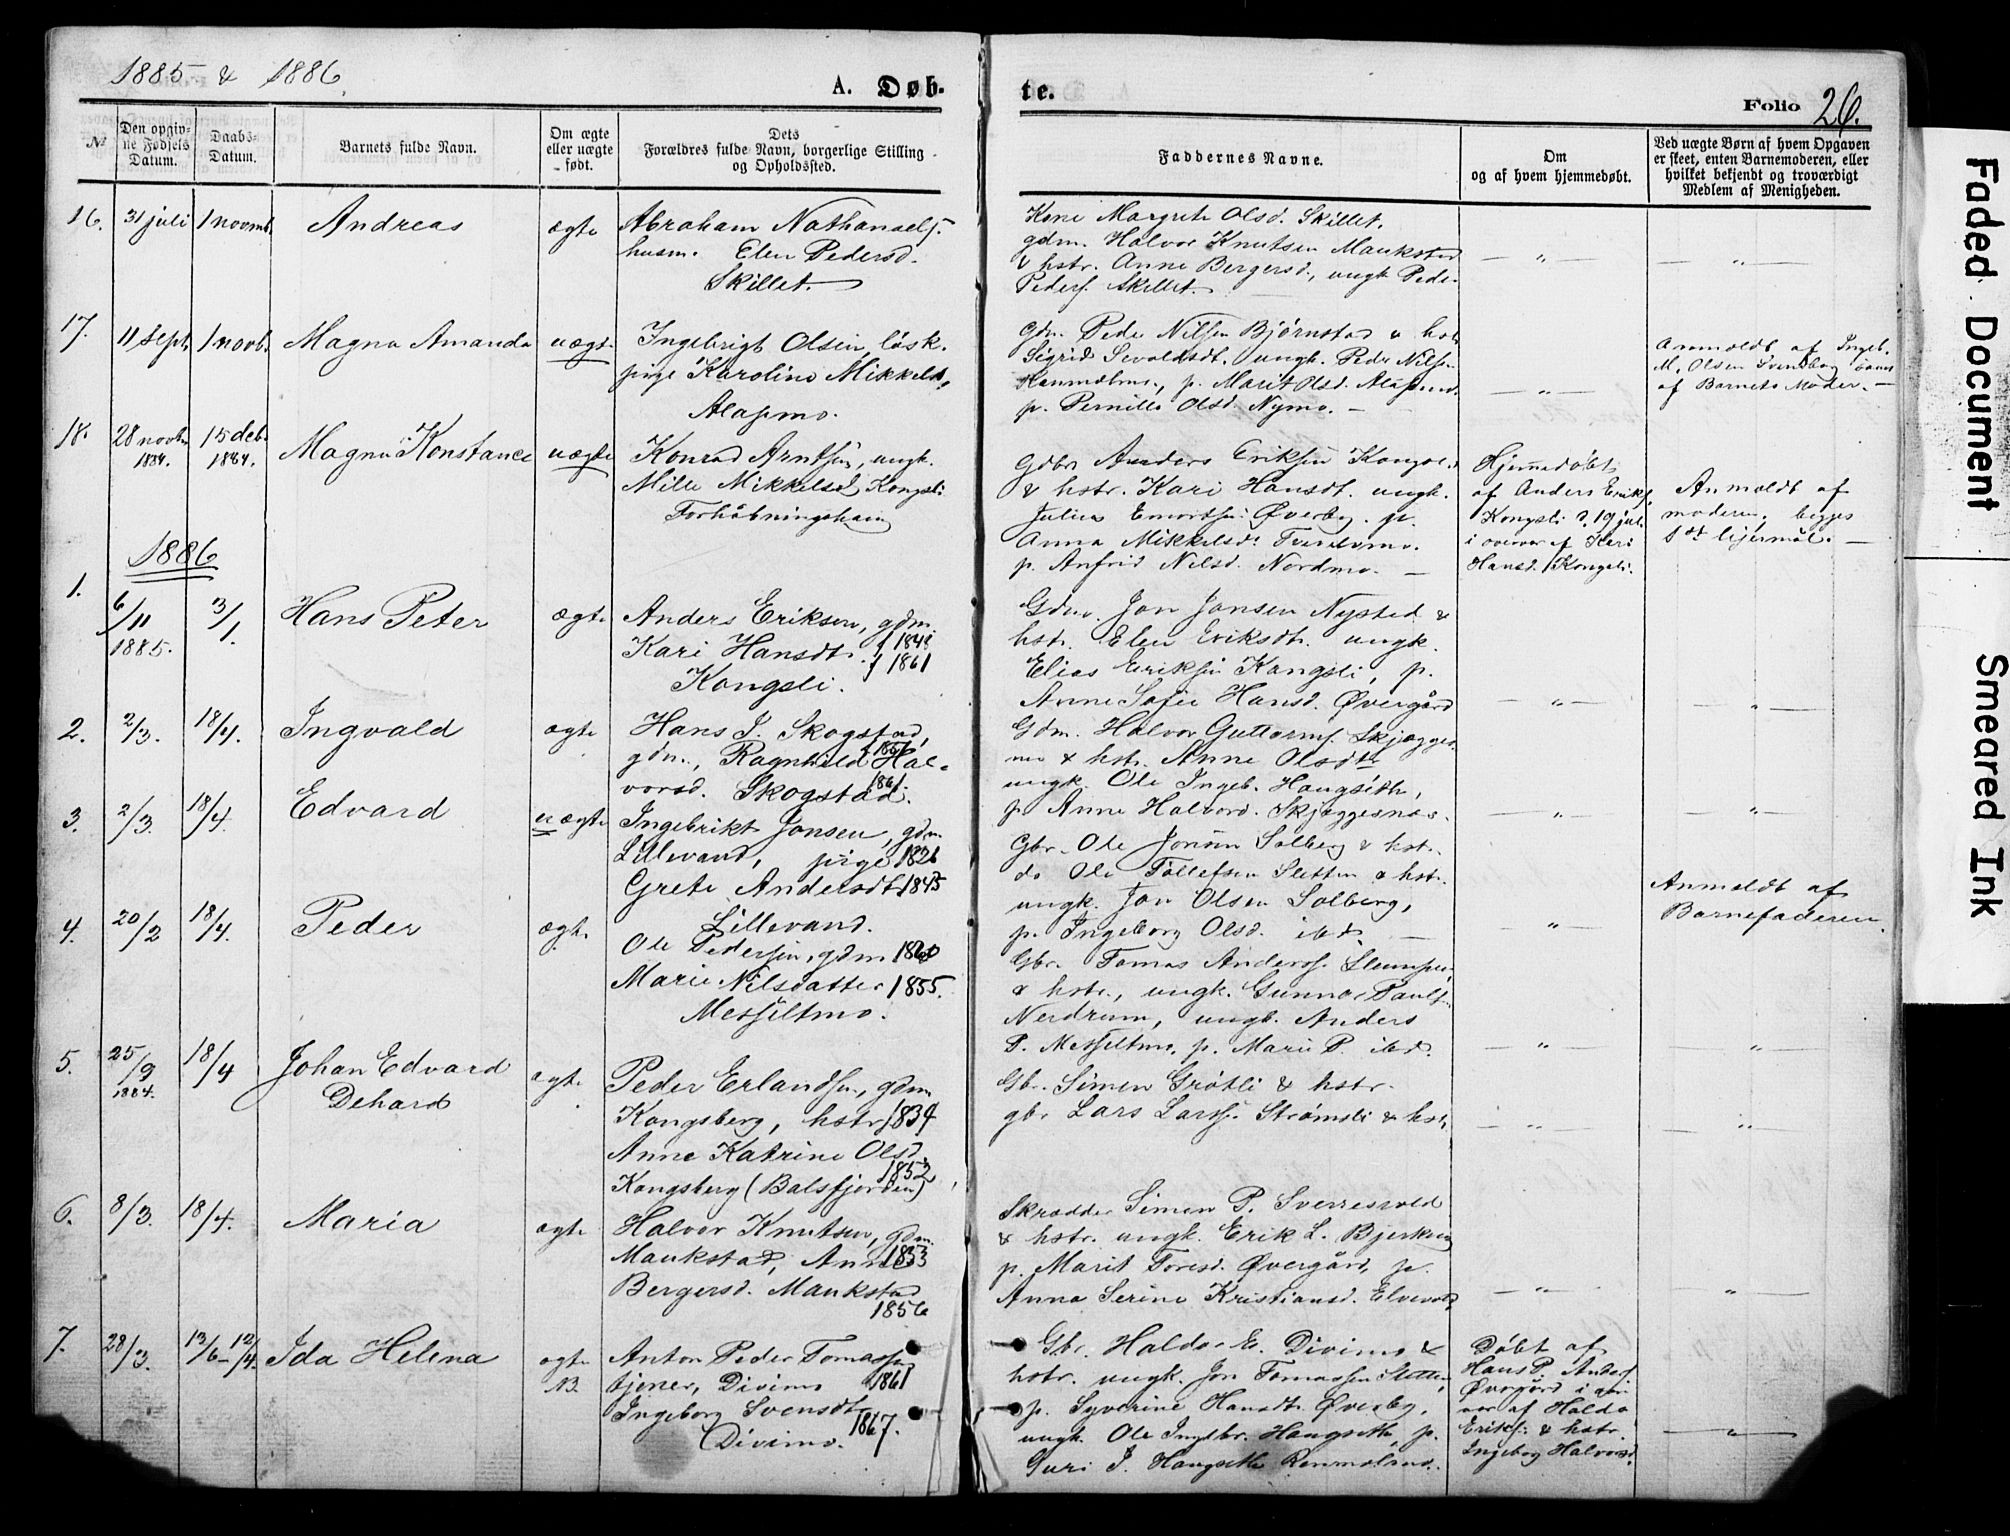 1885 & 1886.
A. Døb-
te.
Folio 26.
№
Den opgiv-
ne Fødsels
Datum.
Daabs-
Datum.
Barnets fulde Navn.
Om ægte
eller uægte
født.
Dets
Forældres fulde Navn, borgerlige Stilling
og Opholdssted.
Faddernes Navne.
Om
og af hvem hjemmedøbt.
Ved uægte Børn af hvem Opgaven
er skeet, enten Barnemoderen, eller
hvilket bekjendt og troværdigt
Medlem af Menigheden.
16. 31 juli 1 novmb. Andreas ægte
Abraham Nathanaels.
husm. Elen Pedersd.
Skillet.
Kone Margrete Olsd. Skillet.
gdm. Halvor Knutsen Maukstad
& hstr. Anne Bergersd., ungk. Peder
Peders. Skillet.
— " — — " —
17. 11 sept. 1 novb. Magna Amanda uægte
Ingebrigt Olsen, løsk.
pige Karoline Mikkelsd.
Alapmo.
Gdm. Peder Nilsen Bjørnstad & hstr
Sigrid Sevaldsdt. ungk. Peder Nilsen
p. Marit Olsd.
p. Pernille Olsd. Nymo. —
— " —
Anmeldt af Ingeb.
M. Olsen
af Barnets Moder. —
18. 28 novbr 1884. 15 deb. 1884. Magna Konstance uægte
Konrad Arntsen, ungk.
Mille Mikkelsd. Kongsli
Gdbr Anders Eriksen Kongsli
& hstr. Kari Hansdt. ungk.
Julius Øverby. p.
Anna Mikkelsdt
p. Anfrid Nilsd. Nordmo. —
Hjemmedøbt
af Anders Eriks.
Kongsli d. 19 jul.
i overvær af Kari
Hansd. Kongsli.
Anmeldt af
moderen, begges
1ste lejermål. —
1886
1. 6/11 1885. 3/1. Hans Peter ægte
Anders Eriksen, gdm.
Kari Hansdt. f 1861
Kongsli.
Gdm. Jon Jonsen Nysted &
hstr. Elen Eriksdt. ungk.
Elias Eriksen Kongsli, p.
Anne Sofie Hansd. Øvergård
— " — — " —
2. 2/3. 18/4. Ingvald ægte
Hans J. Skogstad, 1856
gdm., Ragnhild Hal-
vorsd. Skogstad. 1861
Gdm. Halvor Guttorms. Skjægges-
nes & hstr. Anne Olsdtr
ungk Ole Ingeb. Haugseth,
p Anne Halvord. Skjæggesnes.
— " — — " —
3. 2/3. 18/4. Edvard uægte
Ingebrikt Jonsen, gdm
Lillevand, pige 1826
Grete Andersdt. 1843
Lillevand.
Gbr. Ole Jonsen Solberg & hstr.
do Ole Tollefsen Sletten & hstr.
ungk. Jon Olsen Solberg,
p. Ingeborg Olsd. ibd. —
— " —
Anmeldt af
Barnefaderen.
4. 20/2 18/4. Peder ægte
Ole Pedersen, gdm
Marie Nilsdatter 1855.
Messeltmo.
Gbr. Tomas Anders.
& hstr., ungk. Gunnar Pauls.
Nerdrum, ungk. Anders
P. Messeltmo, p. Marie P. ibd.
— " — — " —
5. 25/9 1884. 18/4 Johan Edvard ægte
Dehard
Peder Erlandsen, gdm
Kongsberg, hstr. 1834
Anne Katrine Olsd. 1852
Kongsberg (Balsfjorden)
Gbr. Simen Grøtli & hstr.
gbr Lars Larss. Strømsli & hstr.
— " — — " —
6. 8/3. 18/4. Maria ægte
Halvor Knutsen, gdm.
Maukstad, Anne 1853
Bergersd. Maukstad
1856
Skrædder Simen P. Sverresvold
& hstr. ungk. Erik L. Bjerkeng
p. Marit Toresd. Øvergård, p.
Anna Serine Kristiansd. Elvevold
— " — — " —
7. 28/3. 13/6 – 12/4. Ida Helena ægte
NB.
Anton Peder Tomassen
tjener, Divimo 1861
Ingeborg Svensdt.
Divimo. 1867.
Gbr. Haldor E. Divimo &
hstr. ungk. Jon Tomassen Sletten,
p. Syverine Hansdt. Øverby,
ungk. Ole Ingebr. Haugseth, p.
Guri J. Haugseth
Døbt af
Hans P. Anders.
Øvergård i over-
vær af Haldo
Eriks. & hstr.
Ingeborg Halvorsd.
— " —
Faded Document
Smeared Ink